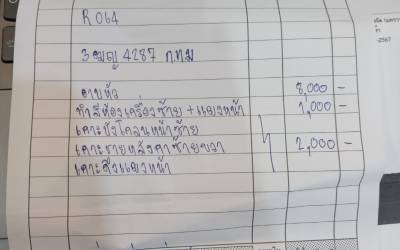 R 064
3ฒญ 4287 กทม
อาบหัว 8,000 –
ทำสีห้องเครื่องซ้าย + แผงหน้า 1,000 –
เคาะบังโคลนหน้าซ้าย
เคาะชายหลังคาซ้ายขวา 2,000 –
เคาะคิ้วแผงหน้า
-2567